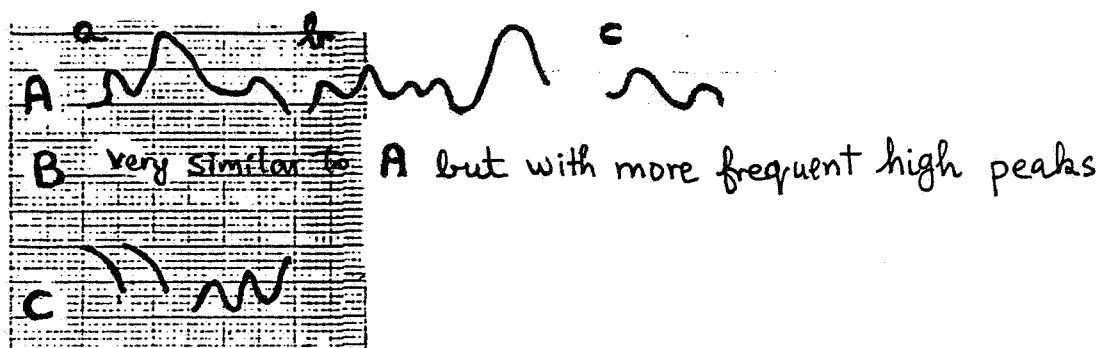 a b c
A
B very similar to A but with more frequent high peaks
C